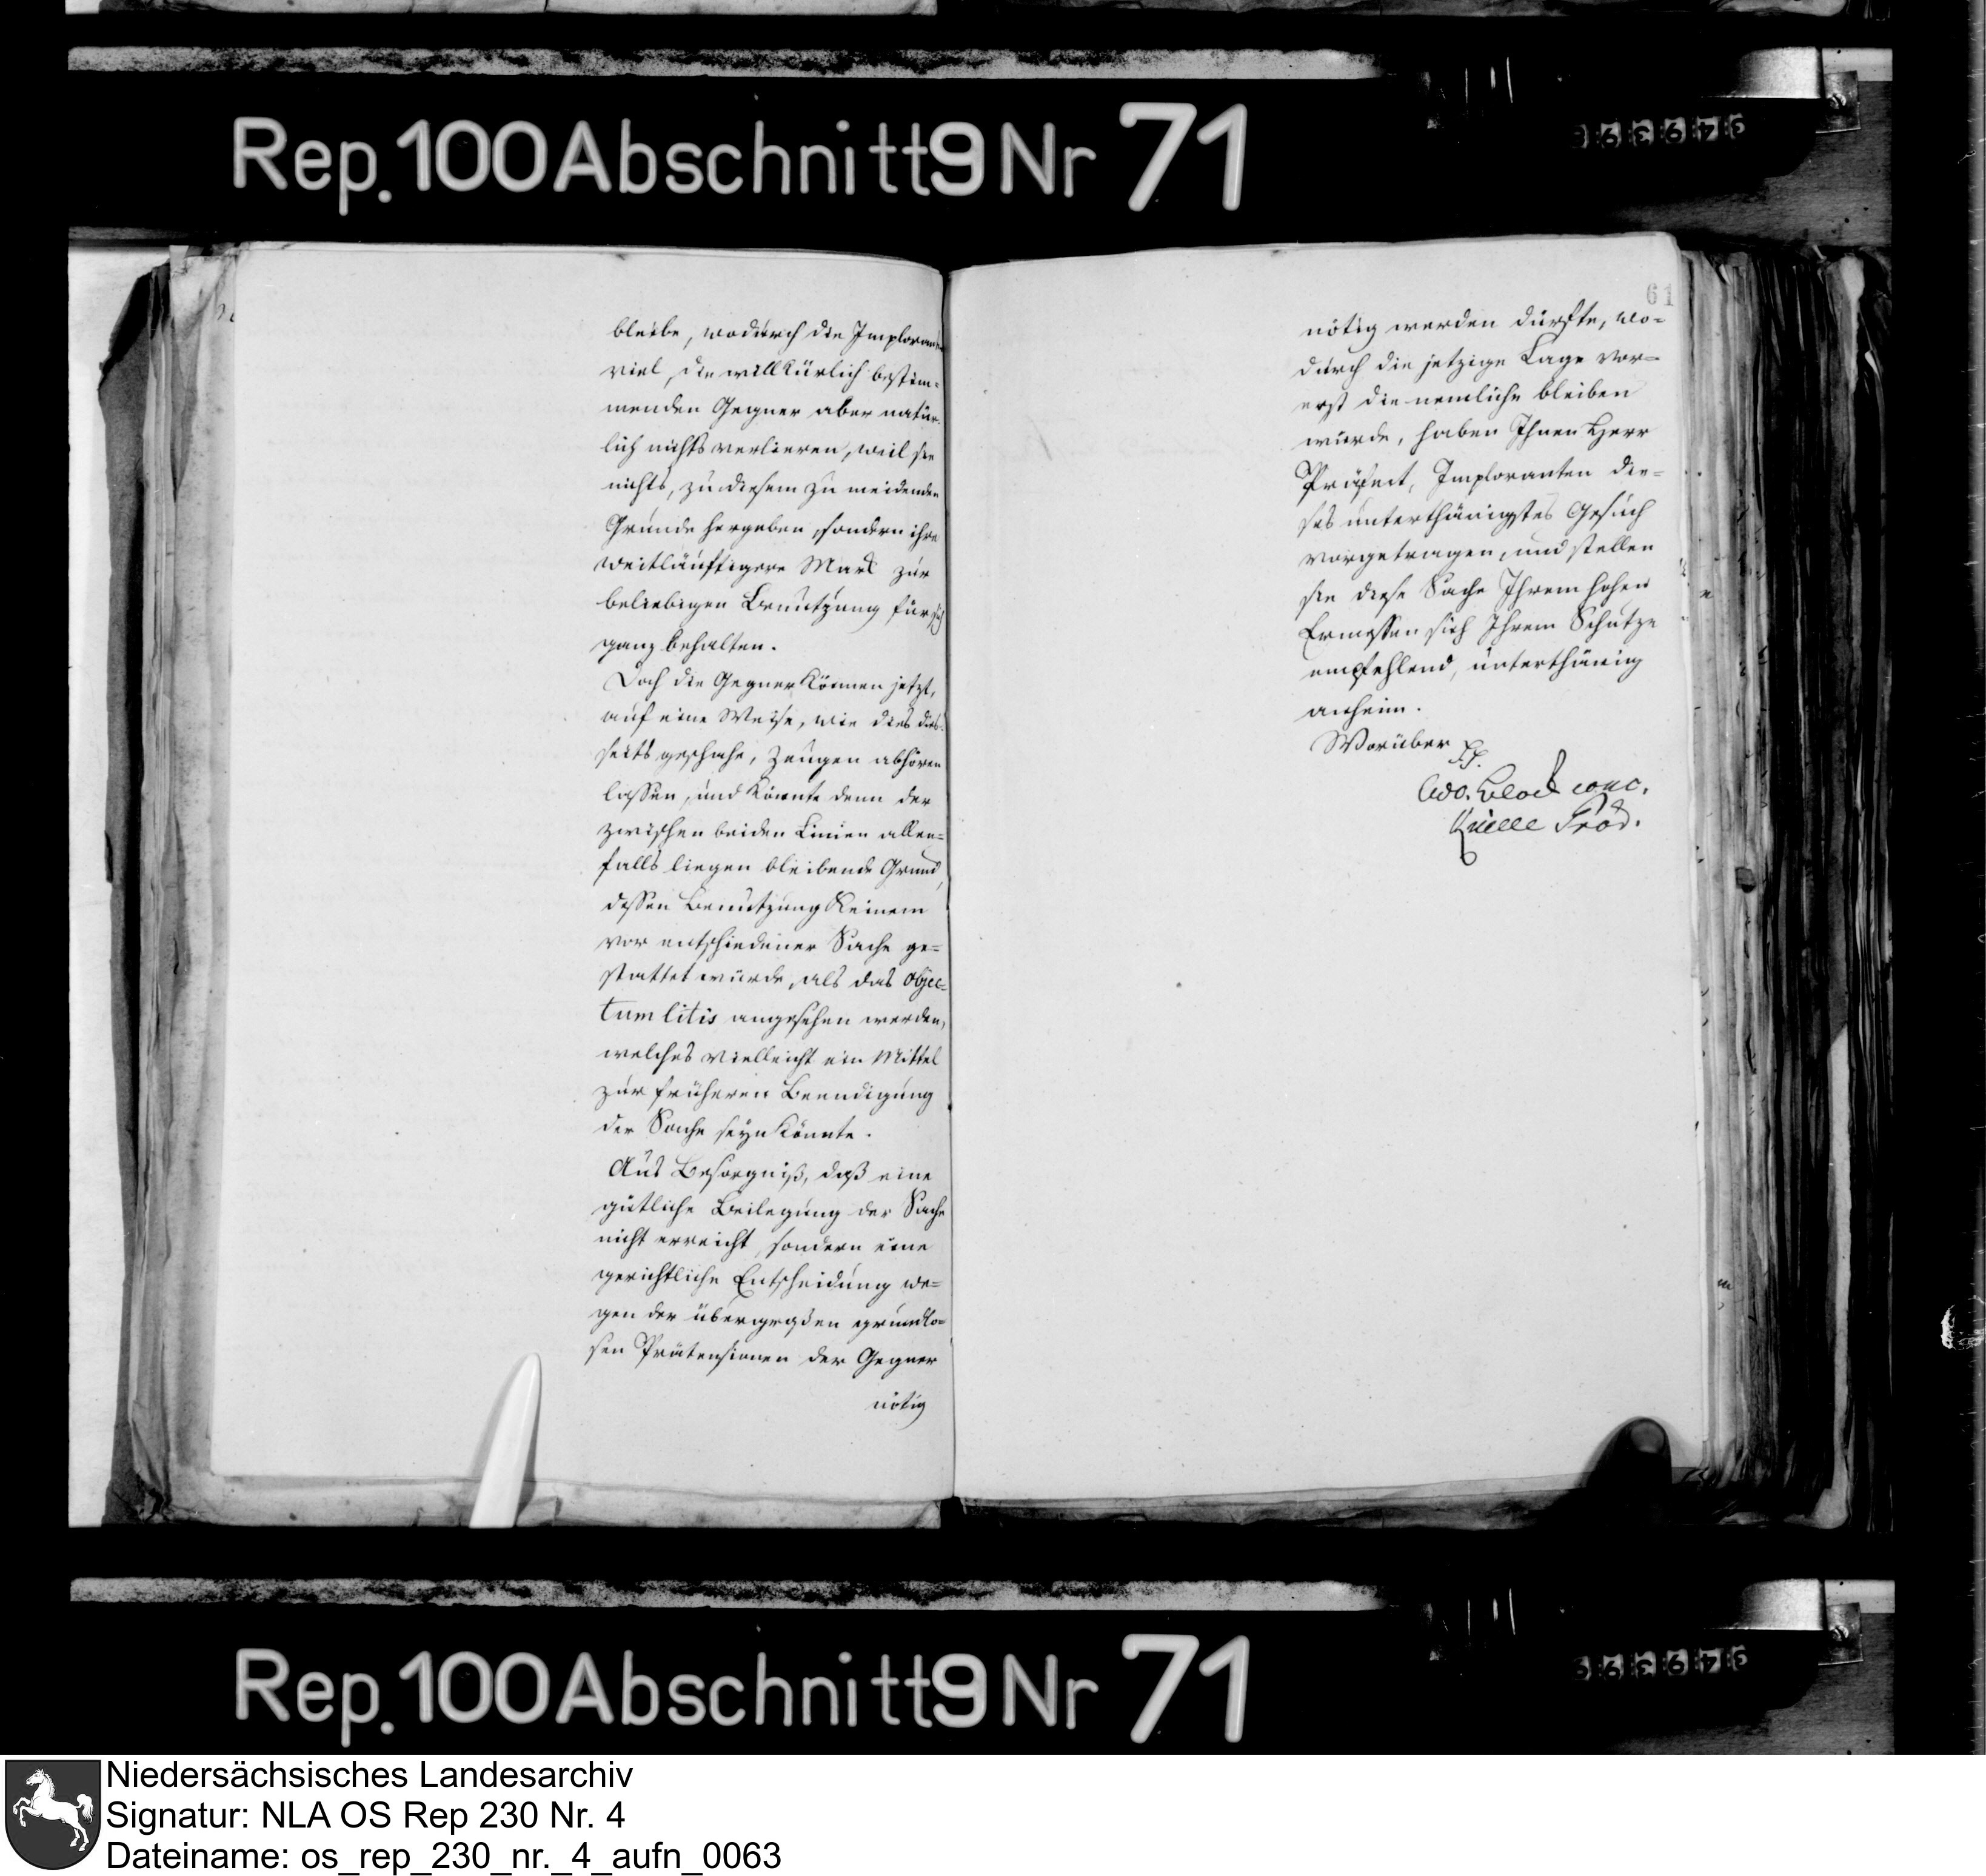 Rep. 100 Abschnitt 9 Nr 71
bleibe, wodurch die Imploranten
viel, die willkürlich bestim-
menden Gegner aber natür-
lich nichts verlieren, weil sie
nichts, zu diesem zu meidenden
Grunde hergeben, sondern ihre
weitläuftigere Mark zur
beliebigen Benutzung für sich
ganz behalten.
Doch die Gegner können jetzt,
auf eine Weise, wie dies dies-
seits geschahe, Zeugen abhören
lassen, und könnte denn der
zwischen beiden Linien allen-
falls liegen bleibende Grund,
dessen Benutzung Keinem
vor entschiedener Sache ge-
stattet würde, als das objec-
tum litis angesehen werden,
welches vielleicht ein Mittel
zur früheren Beendigung
der Sache seyn könnte.
Aus Besorgniß, daß eine
gütliche Beilegung der Sache
nicht erreicht, sondern eine
gerichtliche Entscheidung we-
gen der übergroßen grundlo-
sen Prätensionen der Gegner
nötig
61
nötig werden dürfte, wo-
durch die jetzige Lage vor-
erst die nemliche bleiben
würde, haben Ihnen Herr
Präfect, Imploranten die-
ses unterthänigstes Gesuch
vorgetragen, und stellen
sie diese Sache Ihrem hohen
Ermessen sich Ihrem Schutze
empfehlend, unterthänig
anheim.
Worüber pp.
Adv. Block conc.
Quelle Prod.
Rep. 100 Abschnitt 9 Nr 71
Niedersächsisches Landesarchiv
Signatur: NLA OS Rep 230 Nr. 4
Dateiname: os_rep_230_nr._4_aufn_0063